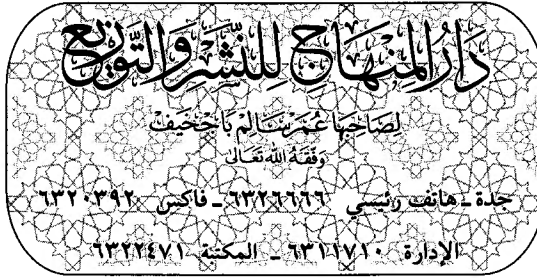 دَارُ المِنْهَاجِ لِلنَّشْرِ وَالتَّوْزِيعِ
لِصَاحِبِهَا عُمَر سَالِم بَاجَخَيف
وَفَّقَهُ اللهُ تَعَالَى
جدة - هاتف رئيسي ٦٣٢٦٦٦٦ - فاكس ٦٣٢٠٣٩٢
الإدارة ٦٣١١٧١٠ - المكتبة ٦٣٢٢٤٧١